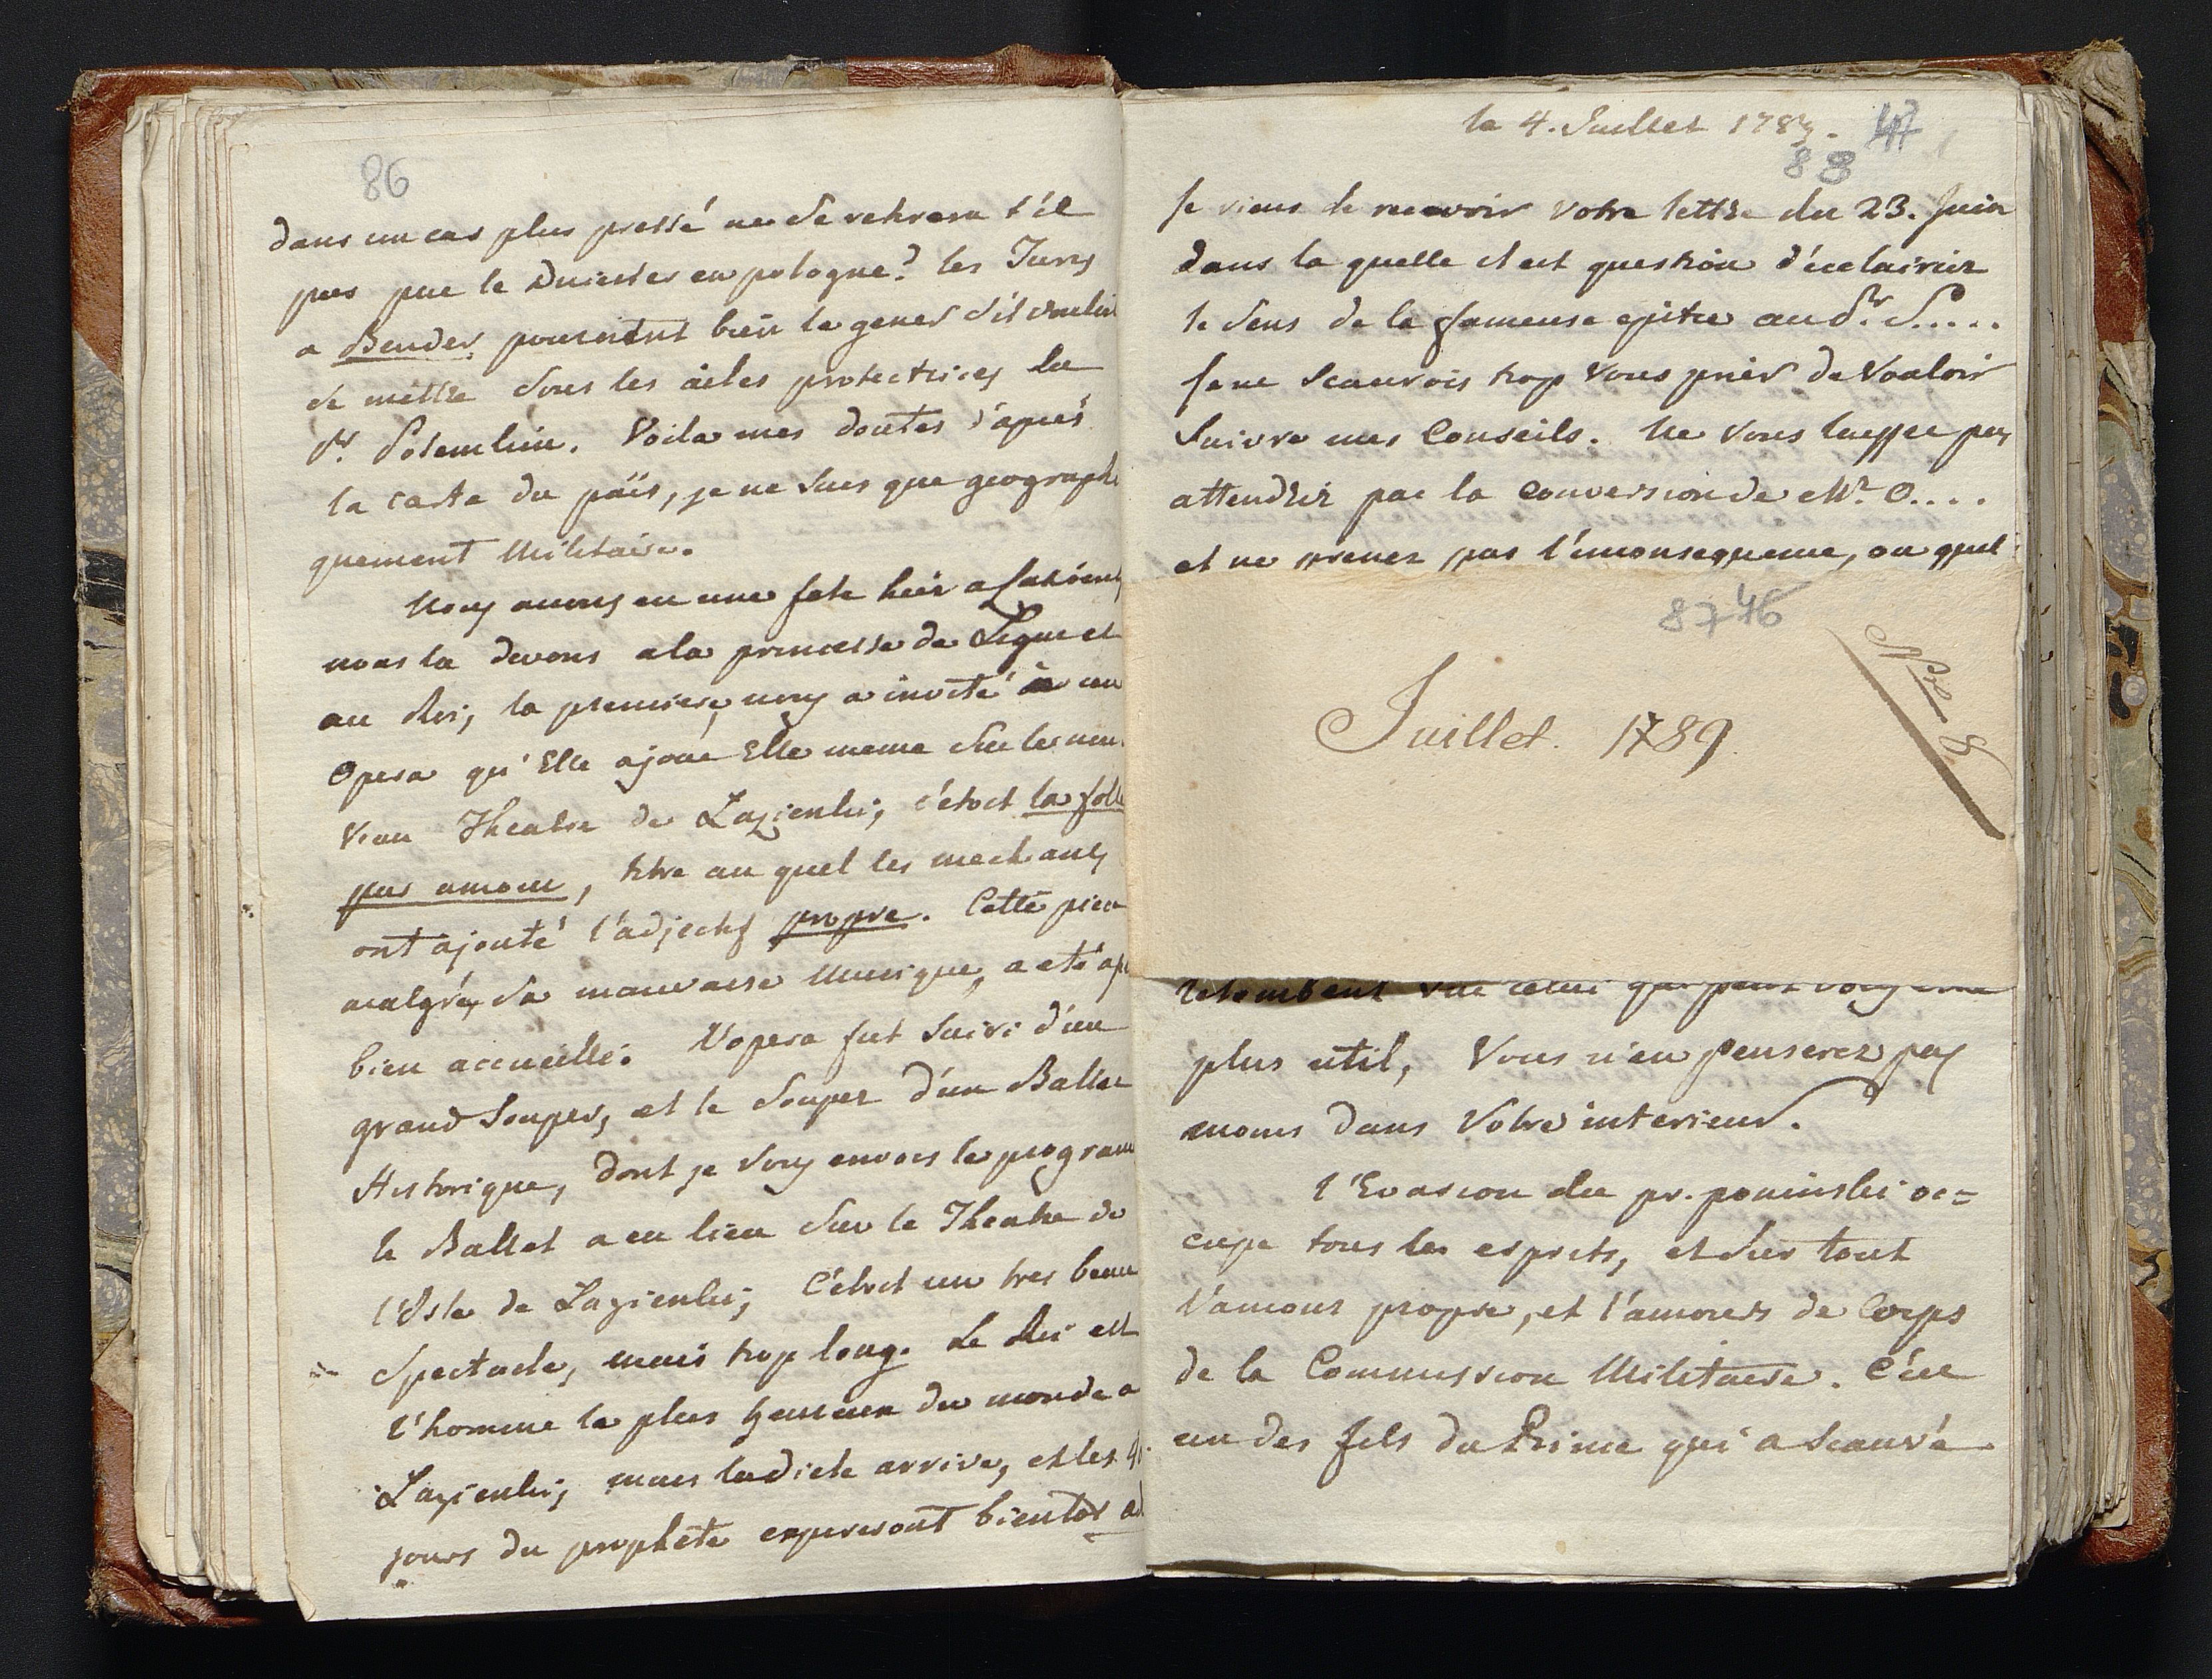 86
dans un cas plus pressé ne se retirera t'il
pas par le Dniester en pologne? les Turcs
a Bender pourroient bien le gener s'il vouloit
se mettre sous les ailes protectrices du
Pr. Potemkin. Voila mes doutes d'apres
la carte du païs, je ne suis que geographi
quement Militaire.
Nous avons eu une fete hier a Lazienki
nous la devons a la princesse de Ligne et
au Roi, la premiere nous a invité à un
Opera qu'Elle a joué Elle meme sur le nou
veau Theatre de Lazienki, c'étoit la folle
par amour, titre au quel les mechants
ont ajouté l'adjectif propre. Cette piece
malgré sa mauvaise Musique, a eté
bien accueillie. L'opera fut suivi d'un
grand souper, et le souper d'un Ballet
Historique, dont je vous envois le program
le Ballet a eu lieu sur le Theatre de
l'Isle de Lazienki, C'étoit un tres beau
Spectacle, mais trop long. Le Roi est
l'homme le plus heureux du monde a
Lazienki, mais la diete arrive, et les
jours du prophete expireront bientot
le 4. Juillet 1789. 47
88
Je viens de recevoir votre lettre du 23. Juin
dans la quelle il est question d'éclaircir
le sens de la fameuse epitre au Sr. S.....
Je ne scaurois trop vous prier de vouloir
suivre mes Conseils. Ne vous laissez pas
attendrir par la conversion de Mr. O....
et ne prenez pas l'inconsequence, ou quel
87 46
No 8
Juillet. 1789.
retombent sur celui qui peut vous etre
plus util, Vous n'en penserez pas
moins dans Votre interieur.
l'Evasion du pr. poninski oc=
cupe tous les esprits, et sur tout
l'amour propre, et l'amour de Corps
de la Commission Militaire. C'est
un des fils du Prince qui a scauvé